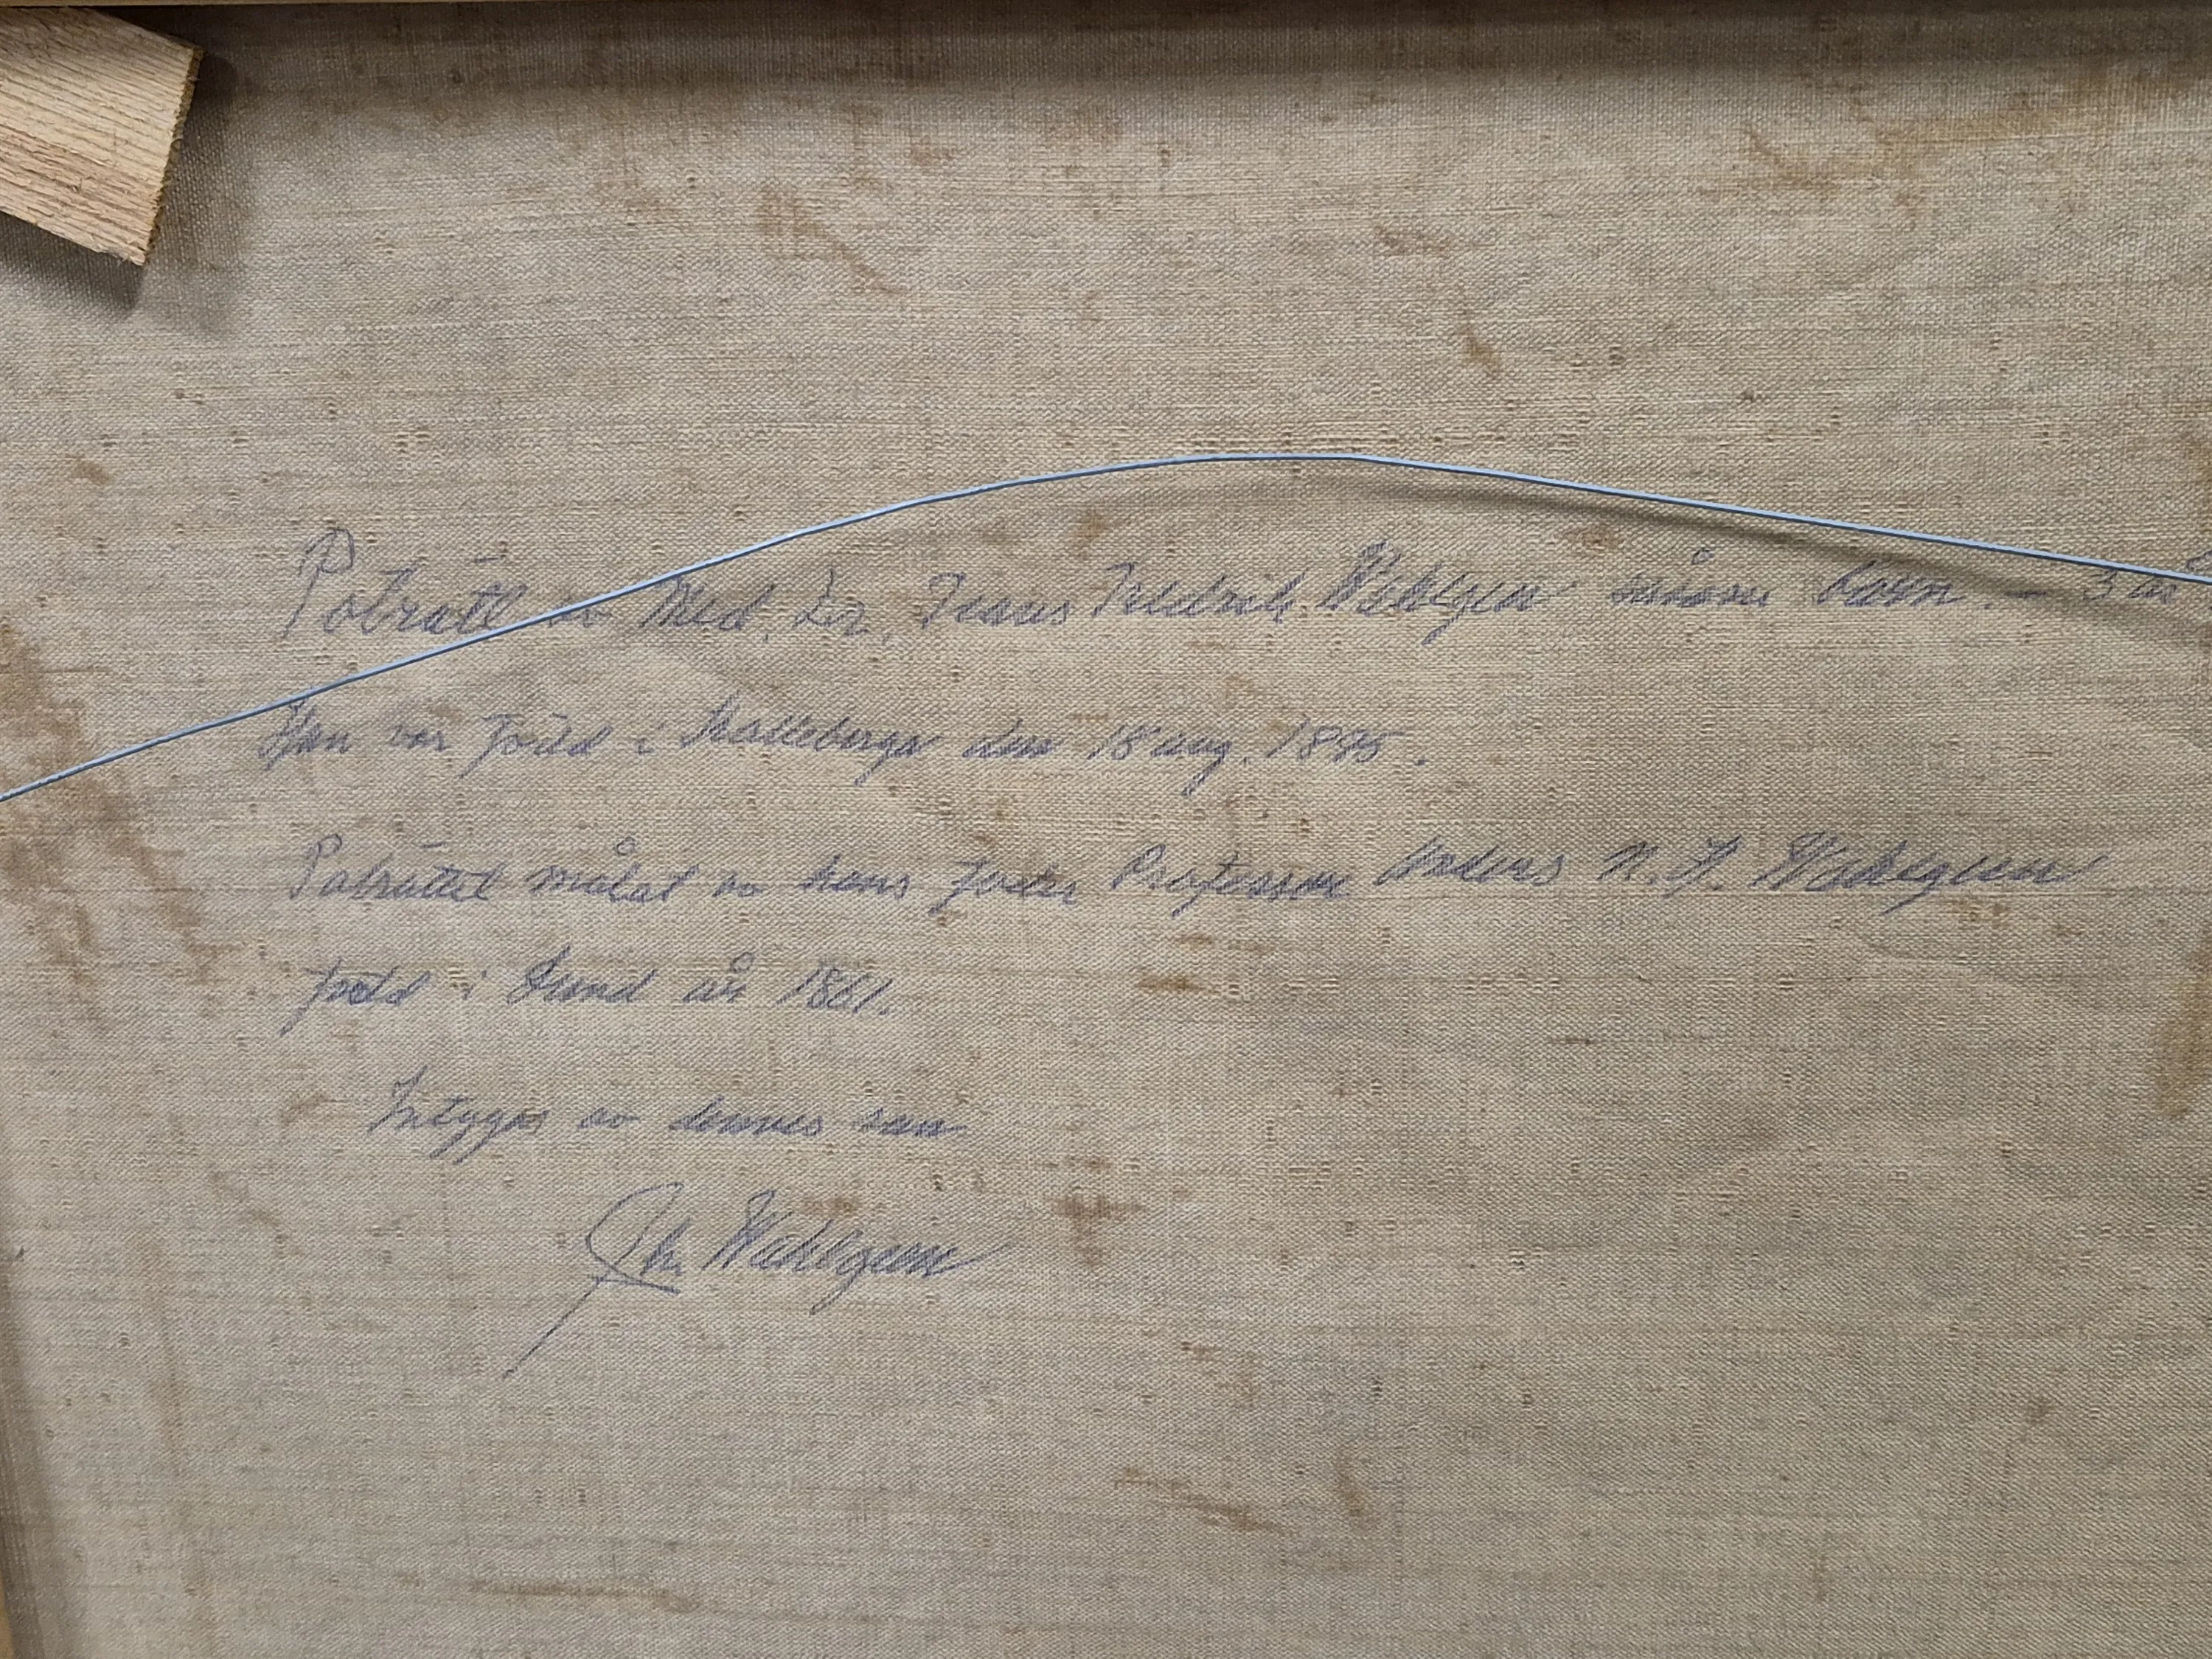 Poträtt av Med. Dr. Frans Fredrik Wahlgren såsom barn. – 3 år
Han var född i Malleberga den 18 aug. 1895.
Poträttet målat av hans fader Professor Anders N. H. Wahlgren
född i Lund år 1861.
Intygas av dennes son
Wahlgren